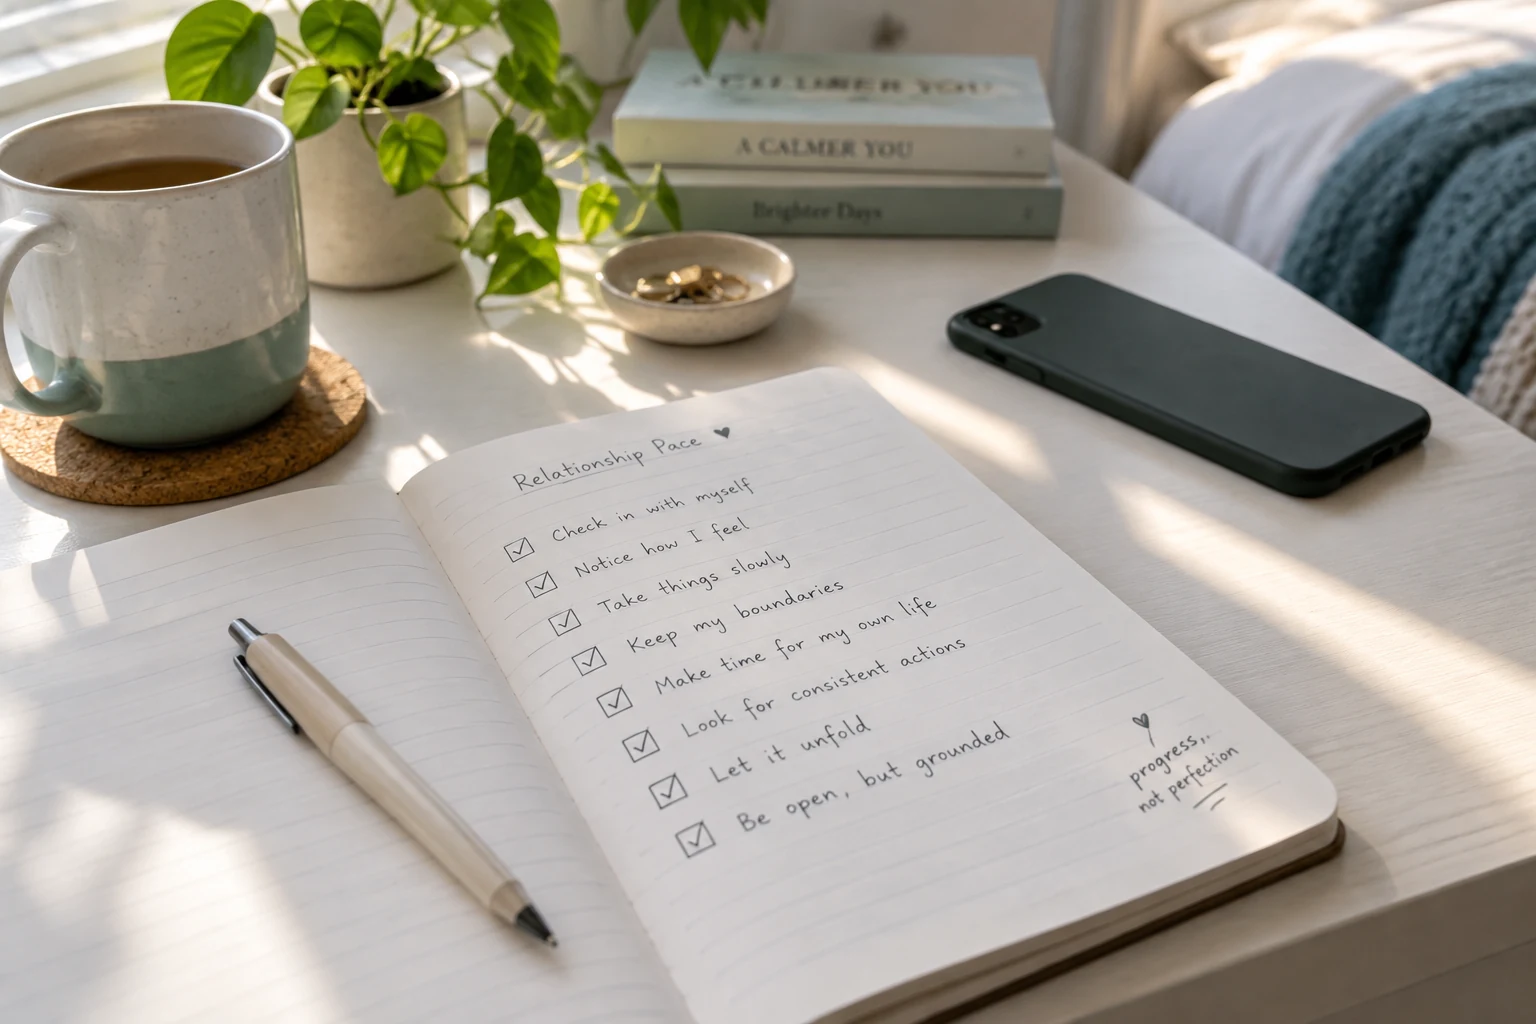 A CALMER YOU
A CALMER YOU
Brighter Days
Relationship Pace ♥
☑ Check in with myself
☑ Notice how I feel
☑ Take things slowly
☑ Keep my boundaries
☑ Make time for my own life
☑ Look for consistent actions
☑ Let it unfold
☑ Be open, but grounded
♥
progress,
not perfection